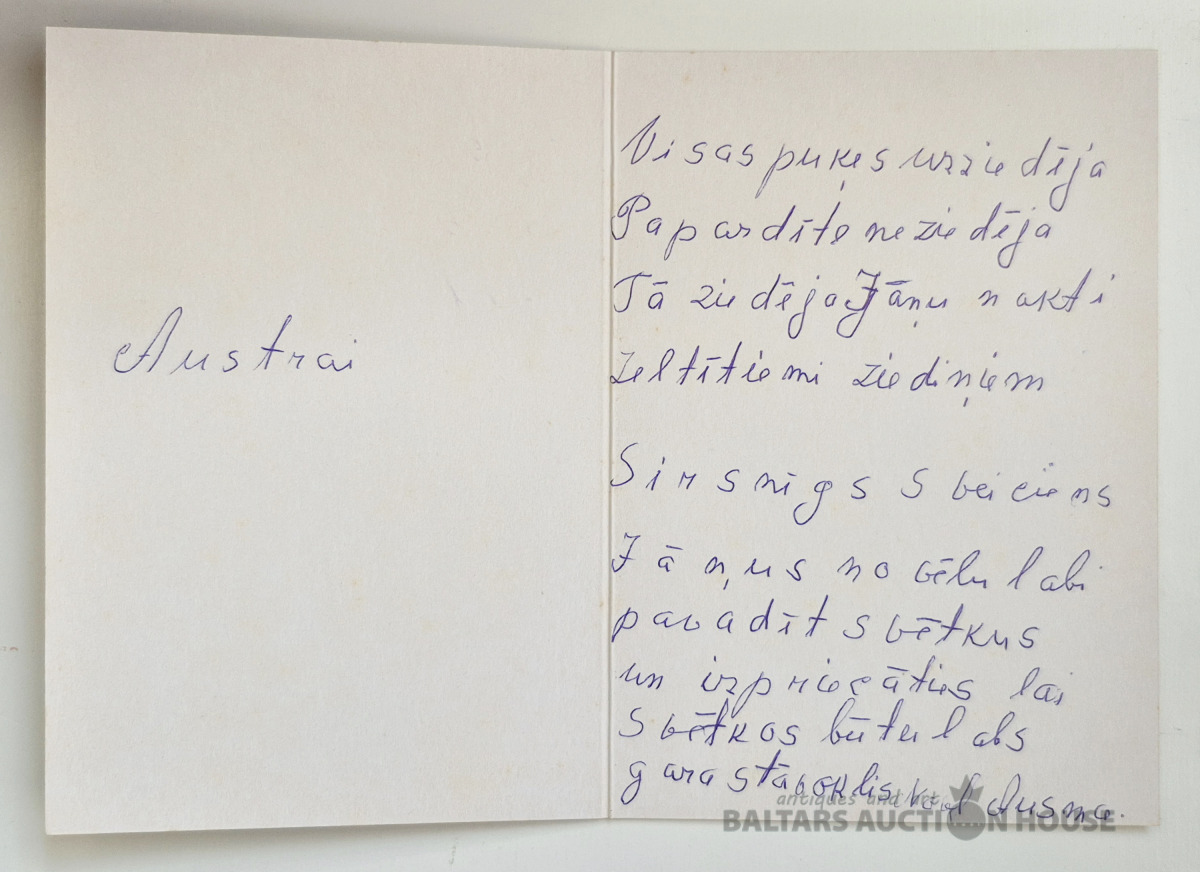 Austrai
Visas puķes uzziedēja
Papardīte neziedēja
Tā ziedēja Jāņu nakti
Zeltītiemi ziediņiem
Sirsnīgs Sveiciens
Jāņus novēlu labi
pavadīt svētkus
un izpriecāties lai
Svētkos būtu labs
garastāvoklis vēl Ausma.
antiques and art
BALTARS AUCTION HOUSE